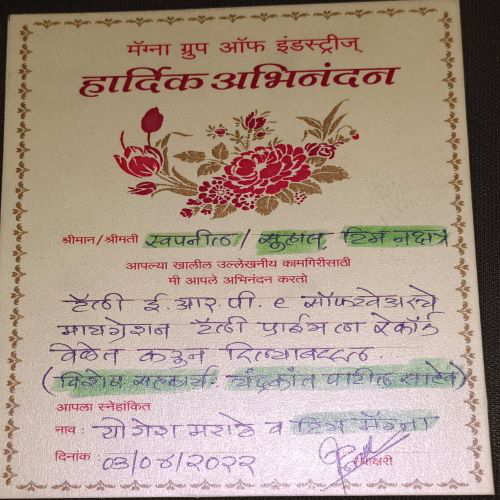 मॅग्ना ग्रुप ऑफ इंडस्ट्रीज्
हार्दिक अभिनंदन
श्रीमान/श्रीमती स्वपनील / सुहास टिम नक्षत्र
आपल्या खालील उल्लेखनीय कामगिरीसाठी
मी आपले अभिनंदन करतो
टॅली ई.आर.पी. e सॉफ्टवेअरचे
मायग्रेशन टॅली प्राईमला रेकॉर्ड
वेळेत करून दिल्याबद्दल.
(विशेष सहकार्य- चंद्रकांत पाटील साहेब)
आपला स्नेहांकित
नाव : योगेश मराठे व टिम मॅग्ना
दिनांक : 03/08/2022 स्वाक्षरी